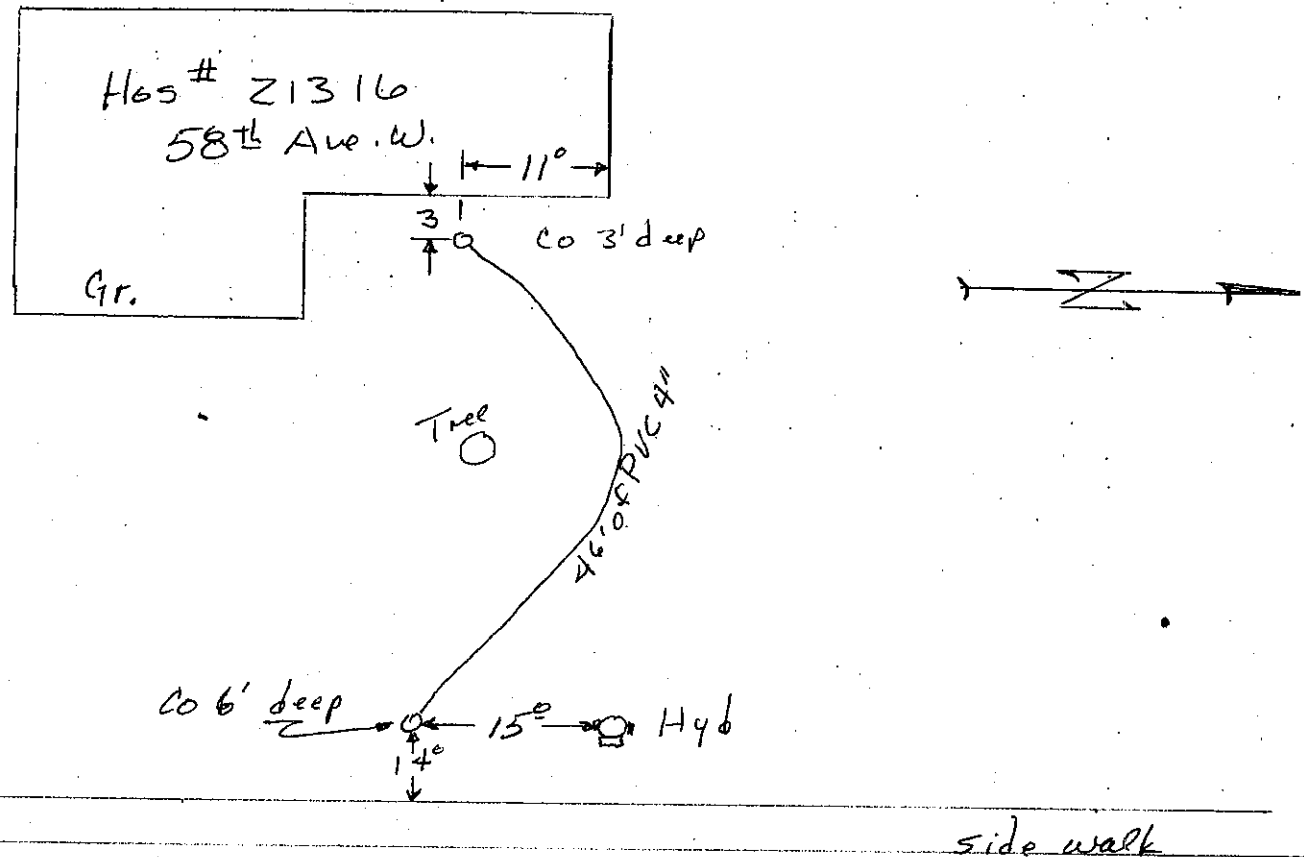 Hos # 21316
58th Ave. W.
11°
3
Co 3' deep
Gr.
N
Tree
46' of PVC 4"
Co 6' deep
15°
Hyd
14°
side walk